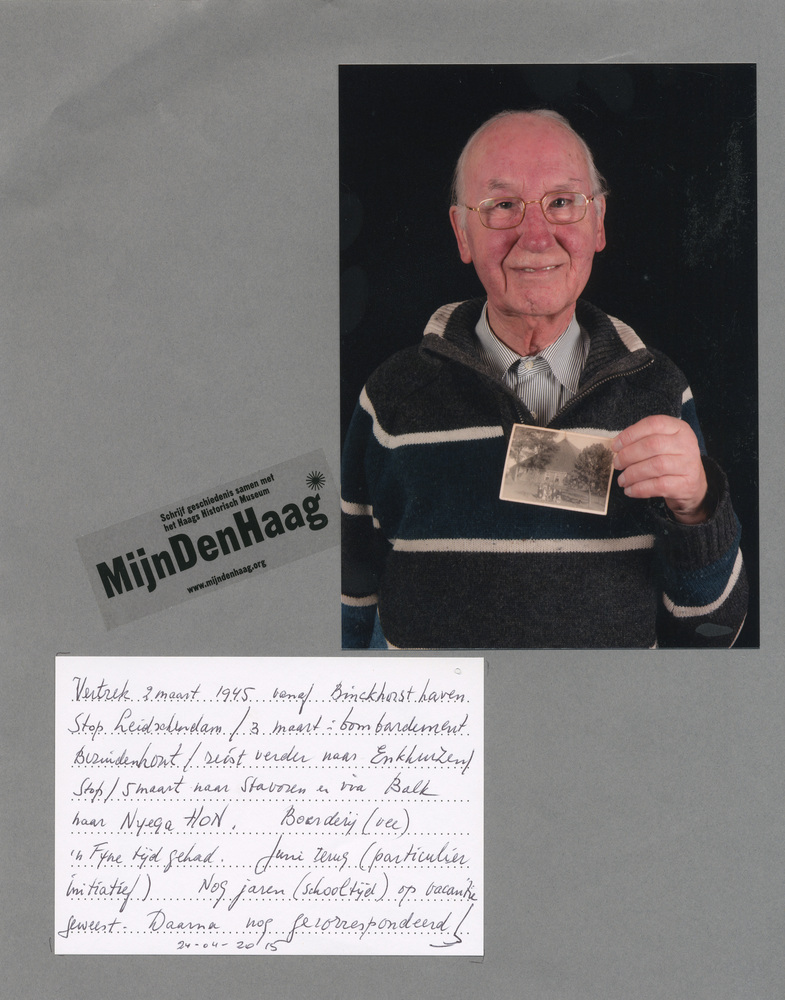 Schrijf geschiedenis samen met
het Haags Historisch Museum
MijnDenHaag
www.mijndenhaag.org
Vertrek 2 maart 1945 vanaf Binckhorst haven
Stop Leidschendam / 3 maart : bombardement
Bezuidenhout / reist verder naar Enkhuizen/
Stop / 5 maart naar Stavoren en via Balk
naar Nyega HON. Boerderij (vee)
'n Fyne tijd gehad. Juni terug (particulier
initiatief) Nog jaren (schooltijd) op vacantie
geweest. Daarna nog gecorrespondeerd!
24-04-2015